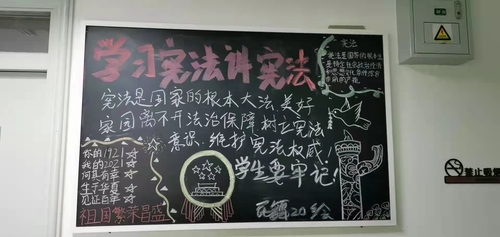 学习宪法讲宪法
宪法是国家的根本大法美好
家园离不开法治保障树立宪法
意识、维护宪法权威!
学生要牢记!
宪法
宪法是国家的根本
你的1921
我的2021
何其有幸
生于华夏
见证百年
祖国繁荣昌盛
20绘
禁止吸烟